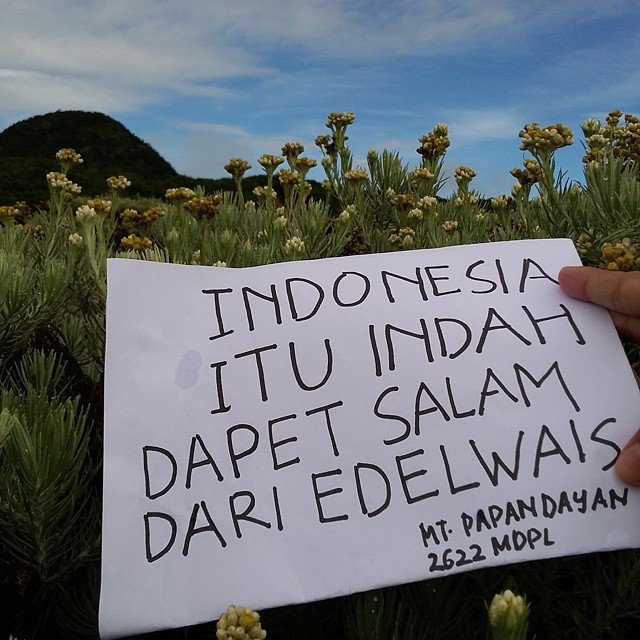 INDONESIA
ITU INDAH
DAPET SALAM
DARI EDELWAIS
MT. PAPANDAYAN
2622 MDPL